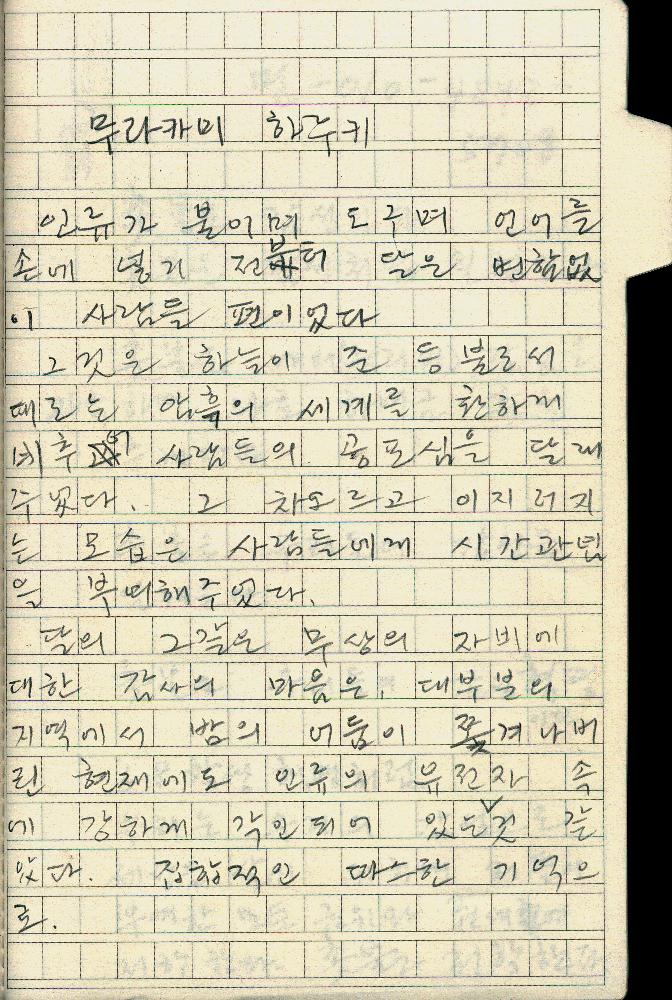 무라카미 하루키
인류가 불이며 도구며 언어를
손에 넣기 전부터 달은 변함없
이 사람들 편이었다
그것은 하늘이 준 등불로서
때로는 암흑의 세계를 환하게
비추어 사람들의 공포심을 달래
주었다. 그 차오르고 이지러지
는 모습은 사람들에게 시간관념
을 부여해주었다.
달의 그같은 무상의 자비에
대한 감사의 마음은, 대부분의
지역에서 밤의 어둠이 쫓겨나버
린 현재에도 인류의 유전자 속
에 강하게 각인되어 있는 것 같
았다. 집합적인 따스한 기억으
로.